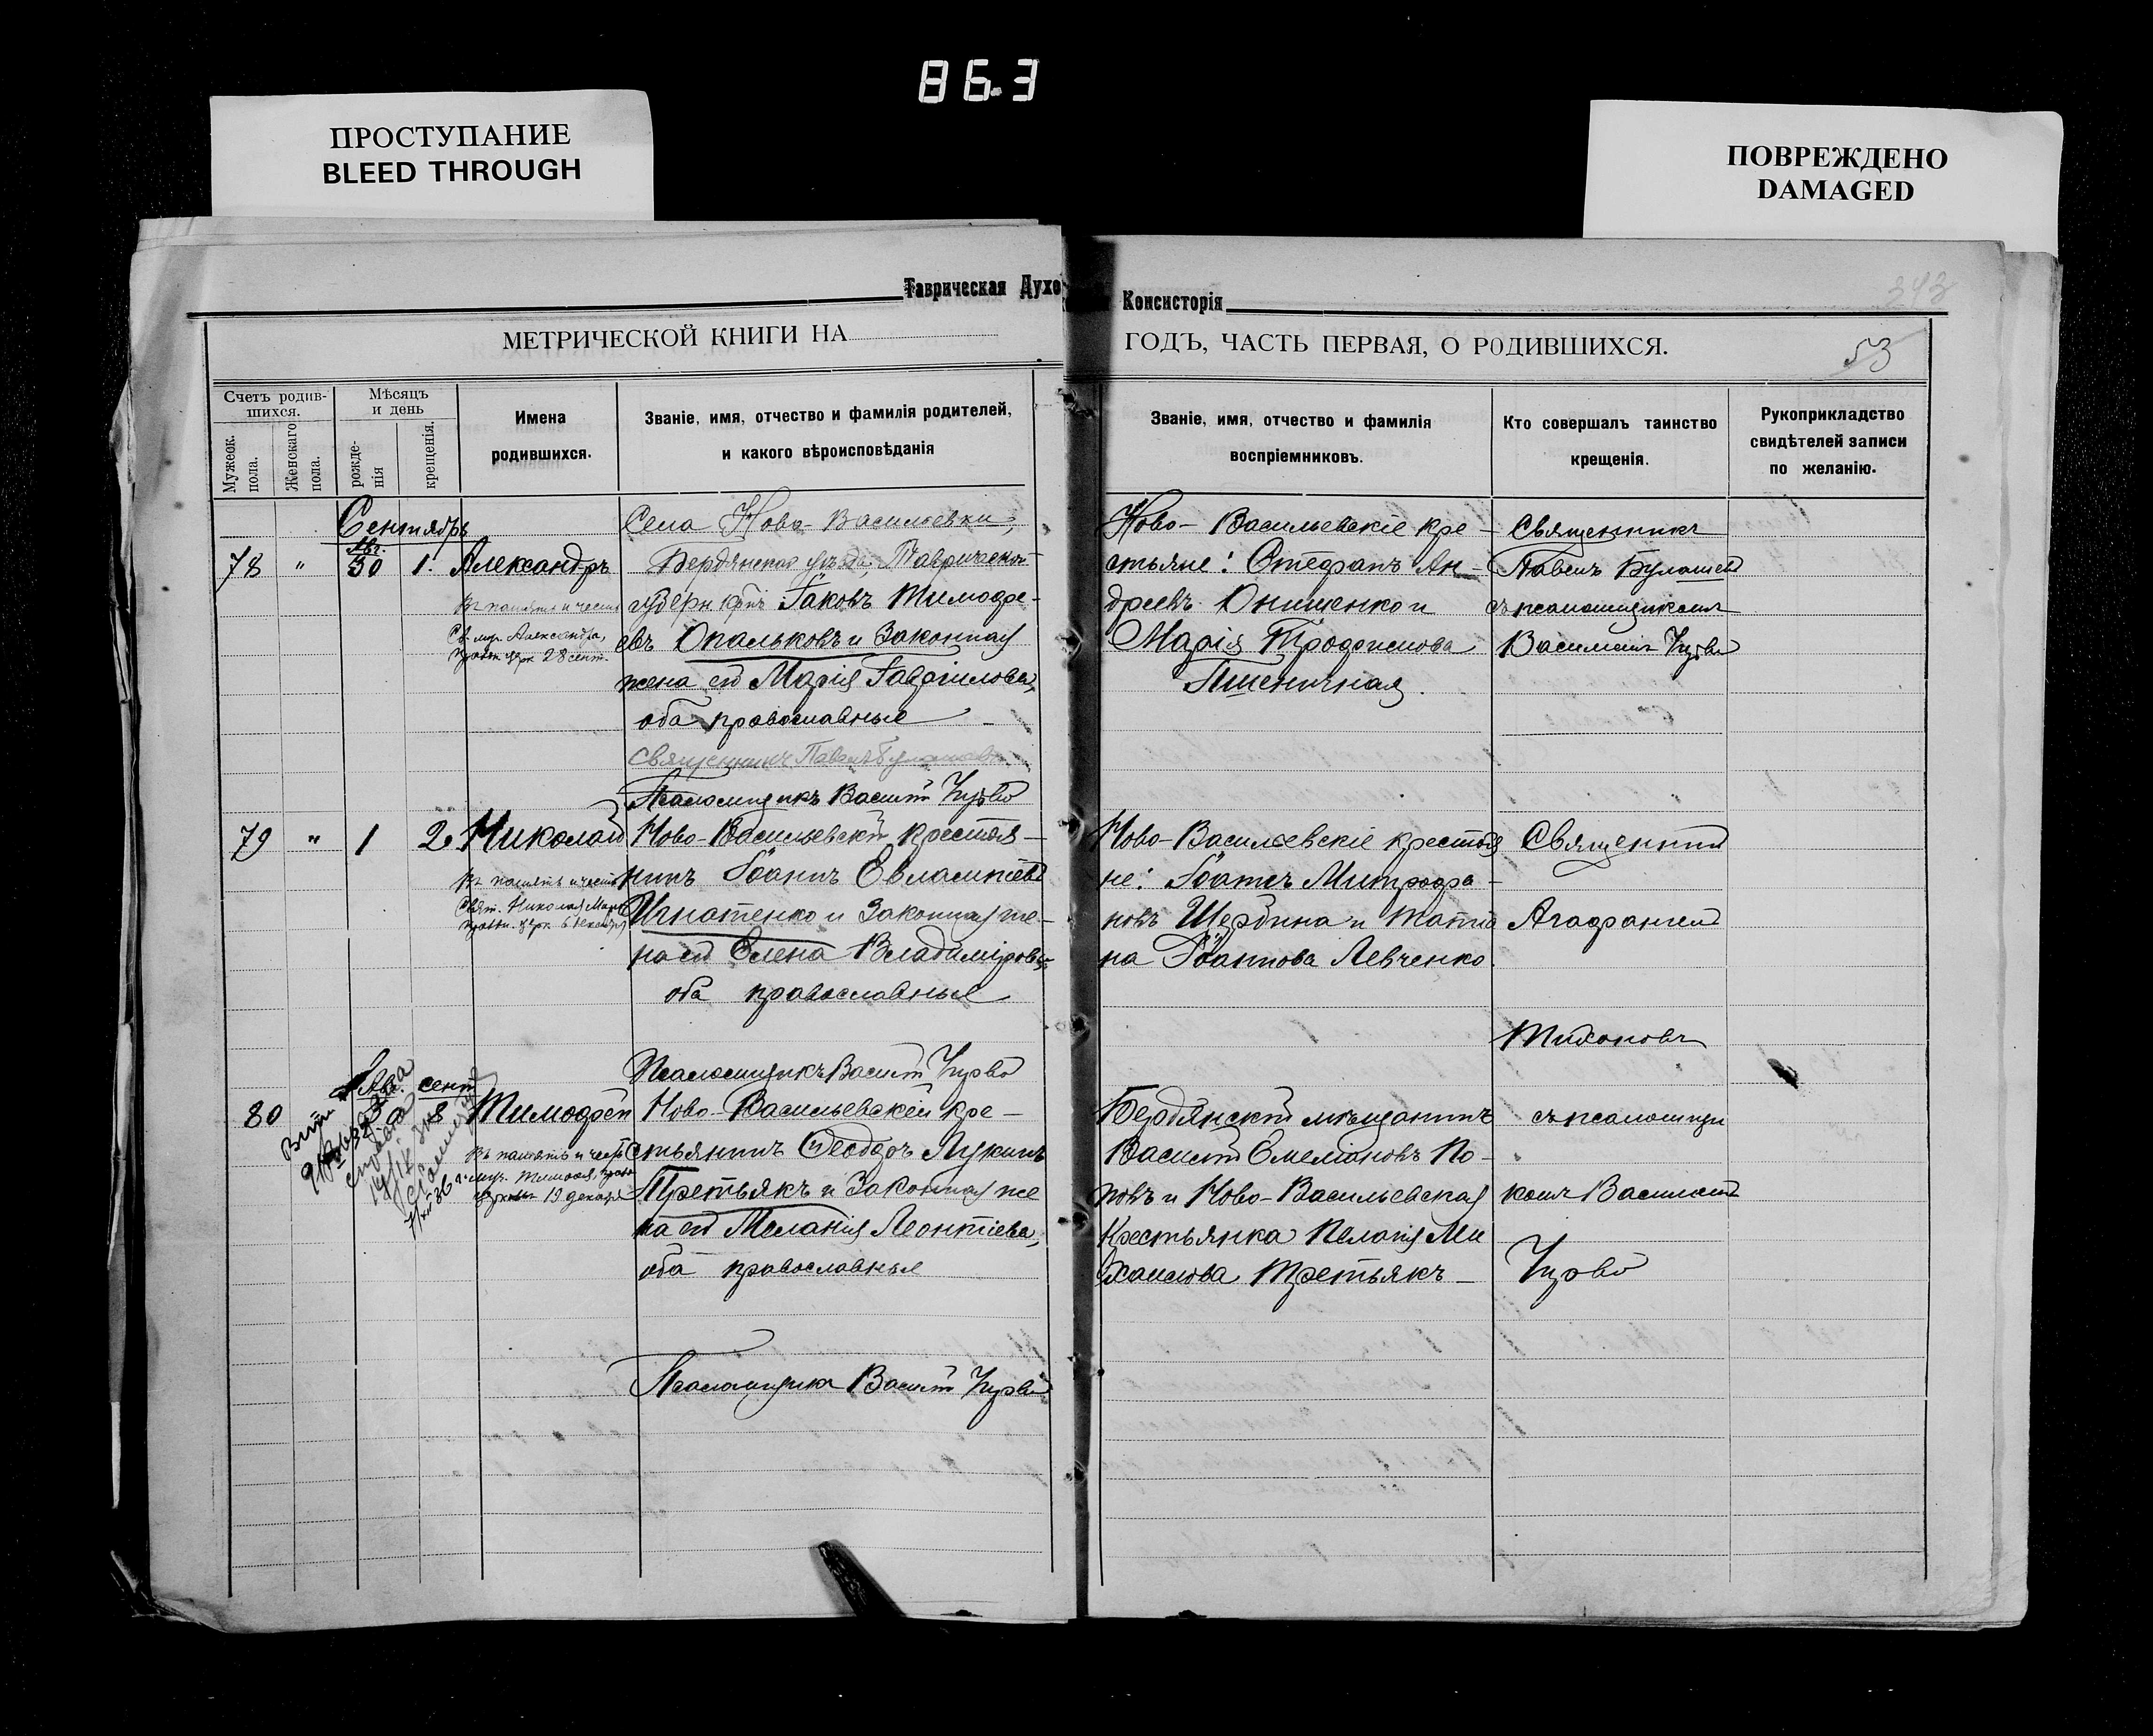 86.3
ПРОСТУПАНИЕ
BLEED THROUGH
ПОВРЕЖДЕНО
DAMAGED
Таврическая Духо
Консисторія
МЕТРИЧЕСКОЙ КНИГИ НА
ГОДЪ, ЧАСТЬ ПЕРВАЯ, О РОДИВШИХСЯ.
53
Счетъ родив-
шихся.
Мужеск.
пола.
Женскаго
пола.
Мѣсяцъ
и день
рожде-
нія
крещенія.
Имена
родившихся.
Званіе, имя, отчество и фамилія родителей,
и какого вѣроисповѣданія
Званіе, имя, отчество и фамилія
воспріемниковъ.
Кто совершалъ таинство
крещенія.
Рукоприкладство
свидѣтелей записи
по желанію.
Сентябрь
78 " Авг. 30 1. Александръ
Въ память и честь
Св. муч. Александра,
празн. церк. 28 сент.
Села Ново-Васильевки,
Бердянскаго уѣзда, Таврической
губерн. кр-нъ Іаковъ Тимофе-
евъ Опальковъ и законная
жена его Марія Гавріилова,
оба православные
Священникъ Павелъ
Псаломщикъ Василій
Ново-Васильевскіе кре-
стьяне: Стефанъ Ан-
дреевъ Онищенко и
Марія Трофимова
Пшеничная.
Священникъ
Павелъ
съ псаломщикомъ
Василіемъ
79 " 1 2. Николай
Въ память и честь
Свят. Николая
празн. церк. 6 декабря
Ново-Васильевскій крестья-
нинъ Іоаннъ Евлампіевъ
Игнатенко и законная же-
на его Елена Владимірова,
оба православные
Псаломщикъ Василій
Ново-Васильевскіе крестья
не: Іоаннъ Митрофа-
новъ Щербина и Татіа
на Іоаннова Левченко.
Священникъ
Агафангелъ
Тихоновъ
80 Авг. 30 сент. 8 Тимофей
Въ память и честь
муч. Тимофея, празн.
церковью 19 декабря
Ново-Васильевскій кре-
стьянинъ Ѳеодоръ Лукинъ
Третьякъ и законная же
на его Меланія Леонтіева,
оба православные
Псаломщикъ Василій
Бердянскій мѣщанинъ
Василій Емеліановъ По-
повъ и Ново-Васильевская
крестьянка Пелагія Ми
хаилова Третьякъ
съ псаломщи
комъ Василіемъ